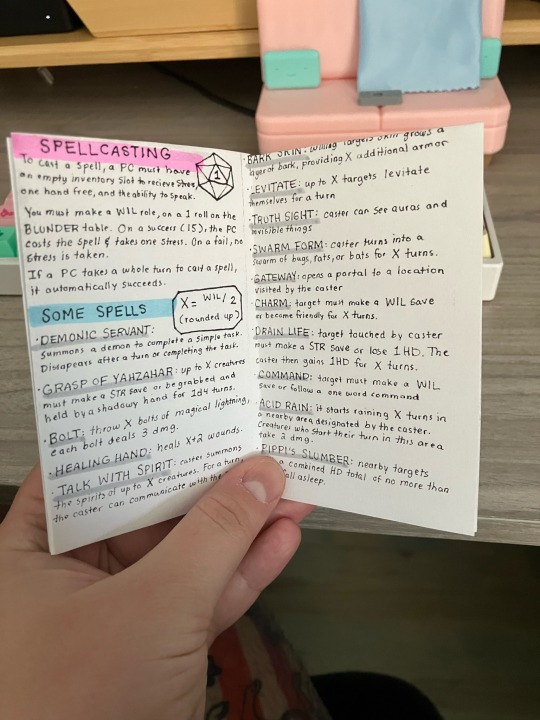 SPELLCASTING
To cast a spell, a PC must have
an empty inventory slot to recieve stress,
one hand free, and the ability to speak.
1
You must make a WIL role, on a 1 roll on the
BLUNDER table. On a success (15), the PC
casts the spell & takes one stress. On a fail, no
stress is taken.
If a PC takes a whole turn to cast a spell,
it automatically succeeds.
SOME SPELLS
X = WIL/2
(rounded up)
• DEMONIC SERVANT:
Summons a demon to complete a simple task.
Disappears after a turn or completing the task.
• GRASP OF YAHZAHAR: up to X creatures
must make a STR save or be grabbed and
held by a shadowy hand for 1d4 turns.
• BOLT: throw X bolts of magical lightning,
each bolt deals 3 dmg.
• HEALING HAND: heals X+2 wounds.
• TALK WITH SPIRIT: caster summons
the spirits of up to X creatures. For a turn,
the caster can communicate with the
BARK SKIN: willing targets skin grows a
layer of bark, providing X additional armor
• LEVITATE: up to X targets levitate
themselves for a turn
• TRUTH SIGHT: caster can see auras and
invisible things
• SWARM FORM: caster turns into a
swarm of bugs, rats, or bats for X turns.
• GATEWAY: opens a portal to a location
visited by the caster
• CHARM: target must make a WIL save
or become friendly for X turns.
• DRAIN LIFE: target touched by caster
must make a STR save or lose 1HD. The
caster then gains 1HD for X turns.
• COMMAND: target must make a WIL
save or follow a one word command
• ACID RAIN: it starts raining X turns in
a nearby area designated by the caster.
Creatures who start their turn in this area
take 2 dmg.
• PIPPI'S SLUMBER: nearby targets
a combined HD total of no more than
fall asleep.